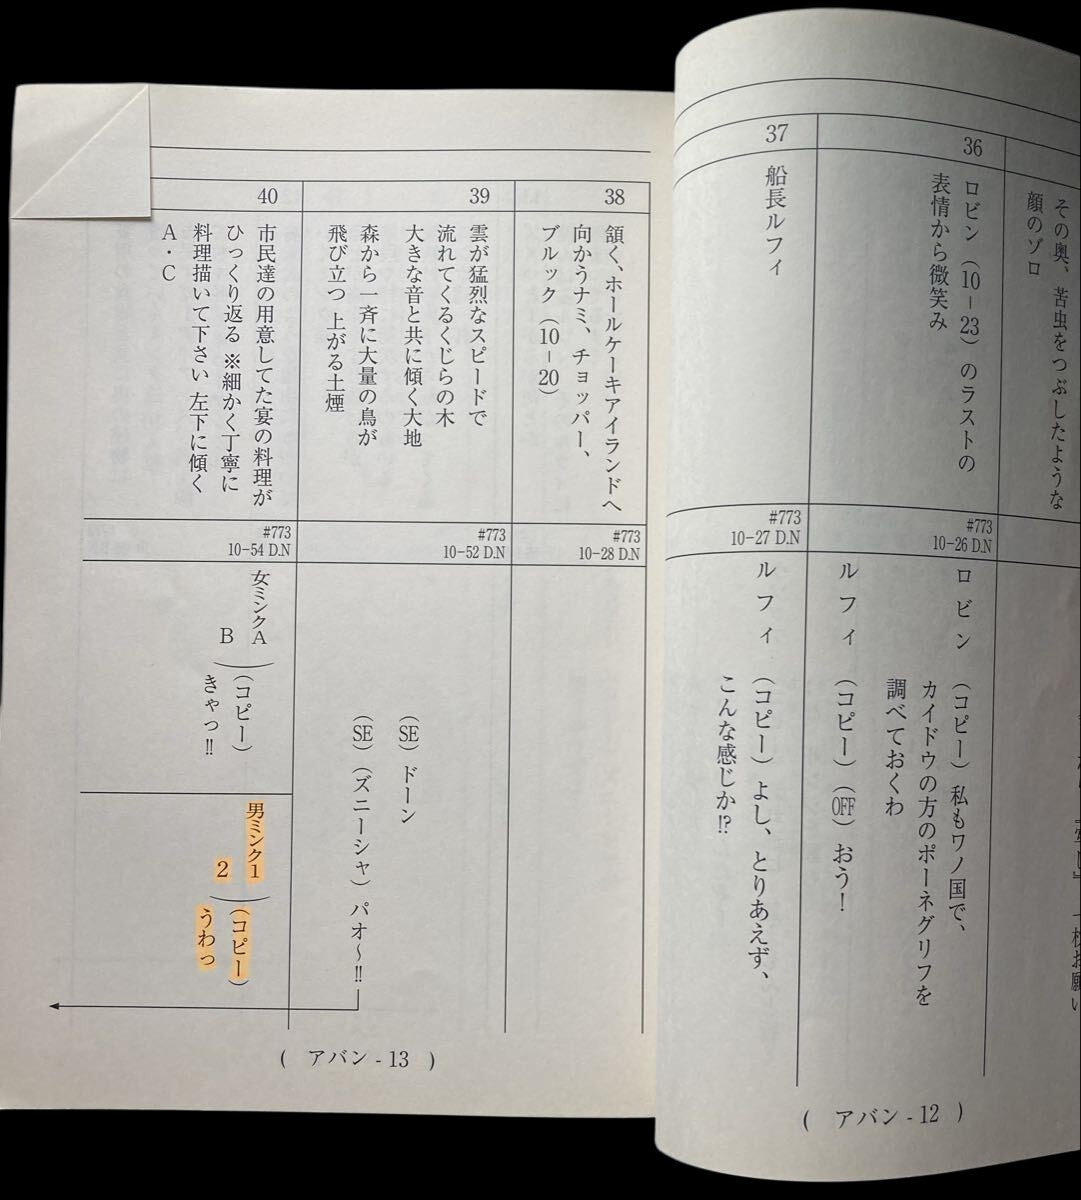 その奥、苦虫をつぶしたような
顔のゾロ
36
ロビン（10－23）のラストの
表情から微笑み
#773
10－26 D.N
ロビン （コピー）私もワノ国で、
カイドウの方のポーネグリフを
調べておくわ
ルフィ （コピー）（OFF）おう！
37
船長ルフィ
#773
10－27 D.N
ルフィ （コピー）よし、とりあえず、
こんな感じか!?
( アバン - 12 )
38
頷く、ホールケーキアイランドへ
向かうナミ、チョッパー、
ブルック（10－20）
#773
10－28 D.N
39
雲が猛烈なスピードで
流れてくるくじらの木
大きな音と共に傾く大地
森から一斉に大量の鳥が
飛び立つ 上がる土煙
#773
10－52 D.N
（SE）ドーン
（SE）（ズニーシャ）パオ～!!
40
市民達の用意してた宴の料理が
ひっくり返る ※細かく丁寧に
料理描いて下さい 左下に傾く
A・C
#773
10－54 D.N
女ミンクA
B
（コピー）
きゃっ!!
男ミンク1
2
（コピー）
うわっ
( アバン - 13 )